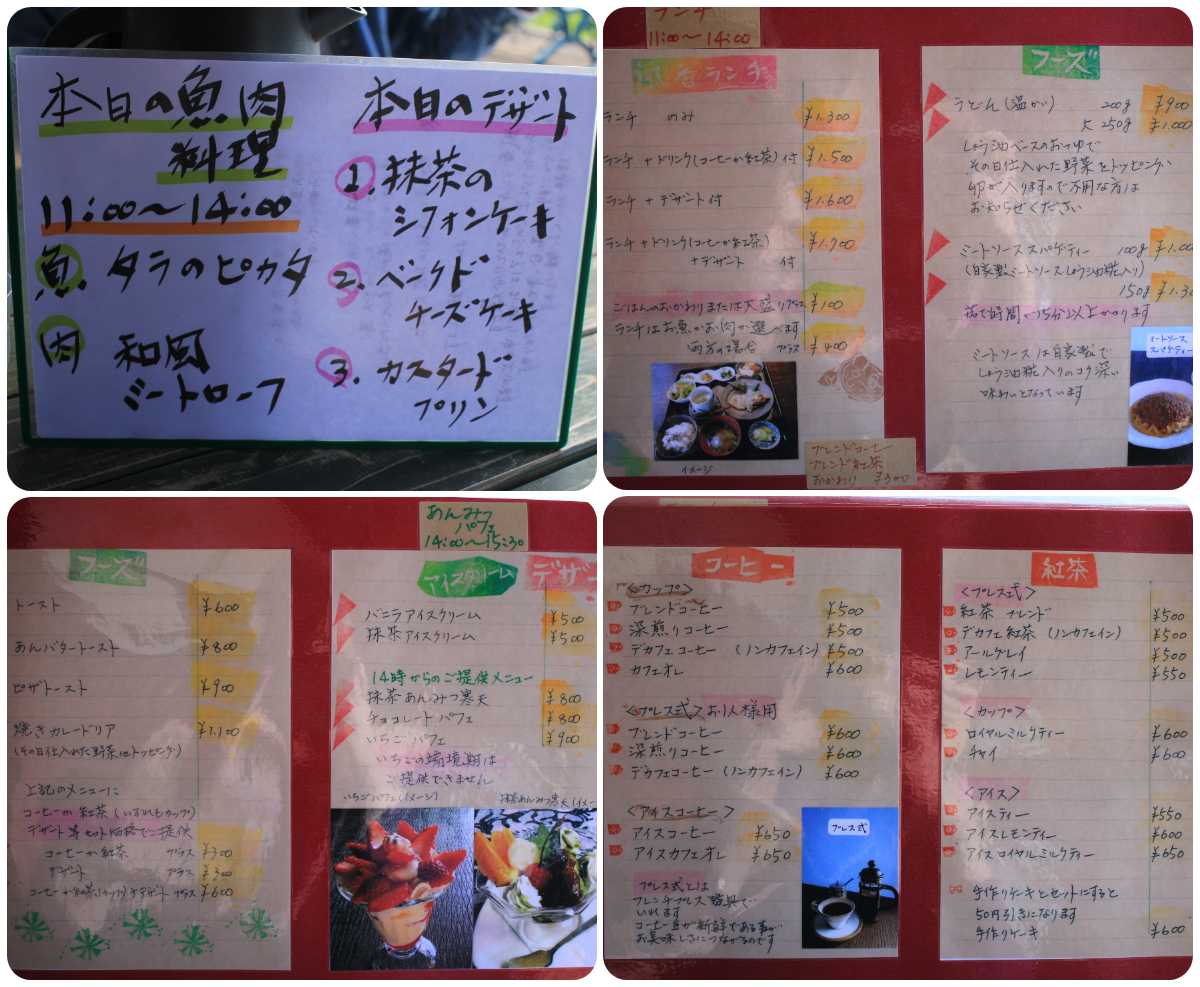 本日の魚肉
料理
11:00〜14:00
魚 タラのピカタ
肉 和風
ミートローフ
本日のデザート
1. 抹茶の
シフォンケーキ
2. ベークド
チーズケーキ
3. カスタード
プリン
ランチ
11:00〜14:00
ランチ
ランチ のみ ¥1.300
ランチ+ドリンク(コーヒーか紅茶)付 ¥1.500
ランチ+デザート付 ¥1.600
ランチ+ドリンク(コーヒーか紅茶) ¥1.900
+デザート 付
ごはんのおかわりまたは大盛りプラス ¥100
ランチはお魚かお肉が選べます
両方の場合 プラス ¥400
イメージ
ブレンドコーヒー
ブレンド紅茶
おかわり ¥300
フーズ
うどん(温かい) 200g ¥900
大 250g ¥1.000
しょう油ベースのおつゆで
その日仕入れた野菜をトッピング
卵が入りますので不用な方は
お知らせください
ミートソーススパゲティー 100g ¥1.00
(自家製ミートソースしょう油糀入り)
150g ¥1.3
茹で時間が15分以上かかります
ミートソースは自家製で
しょう油糀入りのコク深い
味わいとなっています
ミートソース
スパゲティー
フーズ
トースト ¥600
あんバタートースト ¥800
ピザトースト ¥900
焼きカレードリア ¥1.100
(その日仕入れた野菜をトッピング)
上記のメニューに
コーヒーか紅茶(いずれもカップ)
デザート等セット価格でご提供
コーヒーか紅茶 プラス ¥300
デザート プラス ¥300
コーヒーか紅茶(カップ)+デザート プラス ¥600
あんみつ
パフェ
14:00〜15:30
アイスクリーム デザー
バニラアイスクリーム ¥500
抹茶アイスクリーム ¥500
14時からのご提供メニュー
抹茶あんみつ寒天 ¥800
チョコレートパフェ ¥800
いちごパフェ ¥900
いちごの端境期は
ご提供できません
いちごパフェ(イメージ)
抹茶あんみつ寒天(イメー
コーヒー
<カップ>
ブレンドコーヒー ¥500
深煎りコーヒー ¥500
デカフェコーヒー (ノンカフェイン) ¥500
カフェオレ ¥600
<プレス式>お1人様用
ブレンドコーヒー ¥600
深煎りコーヒー ¥600
デカフェコーヒー(ノンカフェイン) ¥600
<アイスコーヒー>
アイスコーヒー ¥650
アイスカフェオレ ¥650
プレス式とは
フレンチプレス器具で
いれます
コーヒー豆が新鮮である事が
お美味しさにつながるのです
プレス式
紅茶
<プレス式>
紅茶ブレンド ¥500
デカフェ紅茶 (ノンカフェイン) ¥500
アールグレイ ¥500
レモンティー ¥550
<カップ>
ロイヤルミルクティー ¥600
チャイ ¥600
<アイス>
アイスティー ¥550
アイスレモンティー ¥600
アイスロイヤルミルクティー ¥650
手作りケーキとセットにすると
50円引きになります
手作りケーキ ¥600